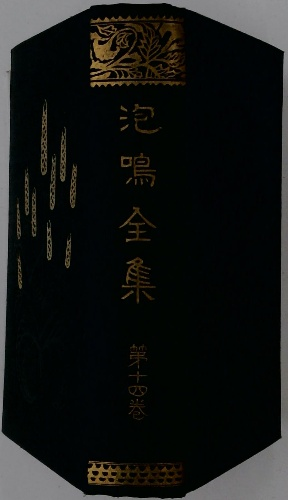 泡鳴全集
第十四巻